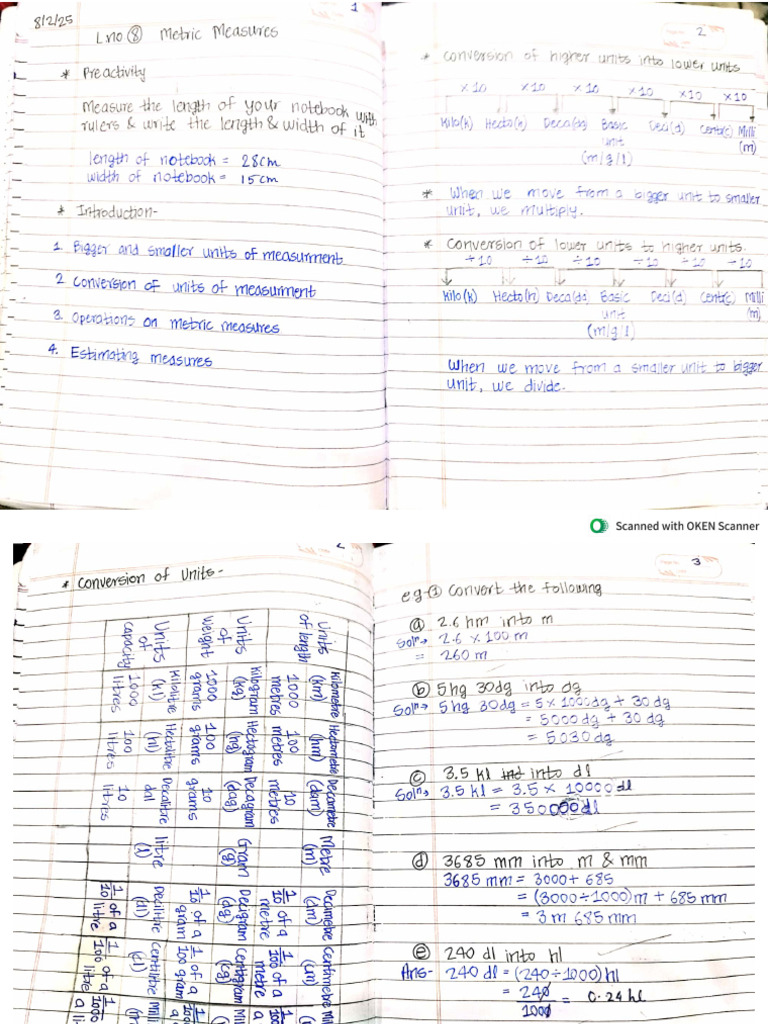 8/2/25
1
L no ⑧ Metric Measures
* Pre activity
Measure the length of your notebook with
rulers & write the length & width of it
length of notebook = 28cm
width of notebook = 15cm
* Introduction-
1. Bigger and smaller units of measurment
2 Conversion of units of measurment
3. Operations on metric measures
4. Estimating measures
2
* Conversion of higher units into lower units
×10 ×10 ×10 ×10 ×10 ×10
Kilo(k) Hecto(h) Deca(da) Basic Deci(d) Centi(c) Milli
unit (m)
(m/g/l)
* When we move from a bigger unit to smaller
unit, we multiply.
* Conversion of lower units to higher units.
÷10 ÷10 ÷10 ÷10 ÷10 ÷10
Kilo(k) Hecto(h) Deca(da) Basic Deci(d) Centi(c) Milli
unit (m)
(m/g/l)
When we move from a smaller unit to bigger
unit, we divide.
Scanned with OKEN Scanner
* Conversion of Units-
Units of length
Kilometre (km) Hectometre (hm) Decametre (dam) Metre (m) Decimetre (dm) Centimetre (cm)
1000 metres 100 metres 10 metres 1/10 of a metre 1/100 of a metre
Units of weight
Kilogram (kg) Hectogram (hg) Decagram (dag) Gram (g) Decigram (dg) Centigram (cg)
1000 grams 100 grams 10 grams 1/10 of a gram 1/100 of a gram
Units of capacity
Kilolitre (kl) Hectolitre (hl) Decalitre dal litre (l) Decilitre (dl) Centilitre (cl)
1000 litres 100 litres 10 litres 1/10 of a litre 1/100 of a litre 1/1000
3
eg ① Convert the following
ⓐ 2.6 hm into m
Soln→ 2.6 × 100 m
= 260 m
ⓑ 5hg 30dg into dg
Soln→ 5hg 30dg = 5 × 1000dg + 30 dg
= 5000dg + 30 dg
= 5030 dg
ⓒ 3.5 kl into dl
Soln→ 3.5 kl = 3.5 × 10000 dl
= 350000dl
ⓓ 3685 mm into m & mm
3685 mm = 3000 + 685
= (3000÷1000)m + 685 mm
= 3 m 685 mm
ⓔ 240 dl into hl
Ans- 240 dl = (240÷1000) hl
= 240/1000 = 0.24 hl